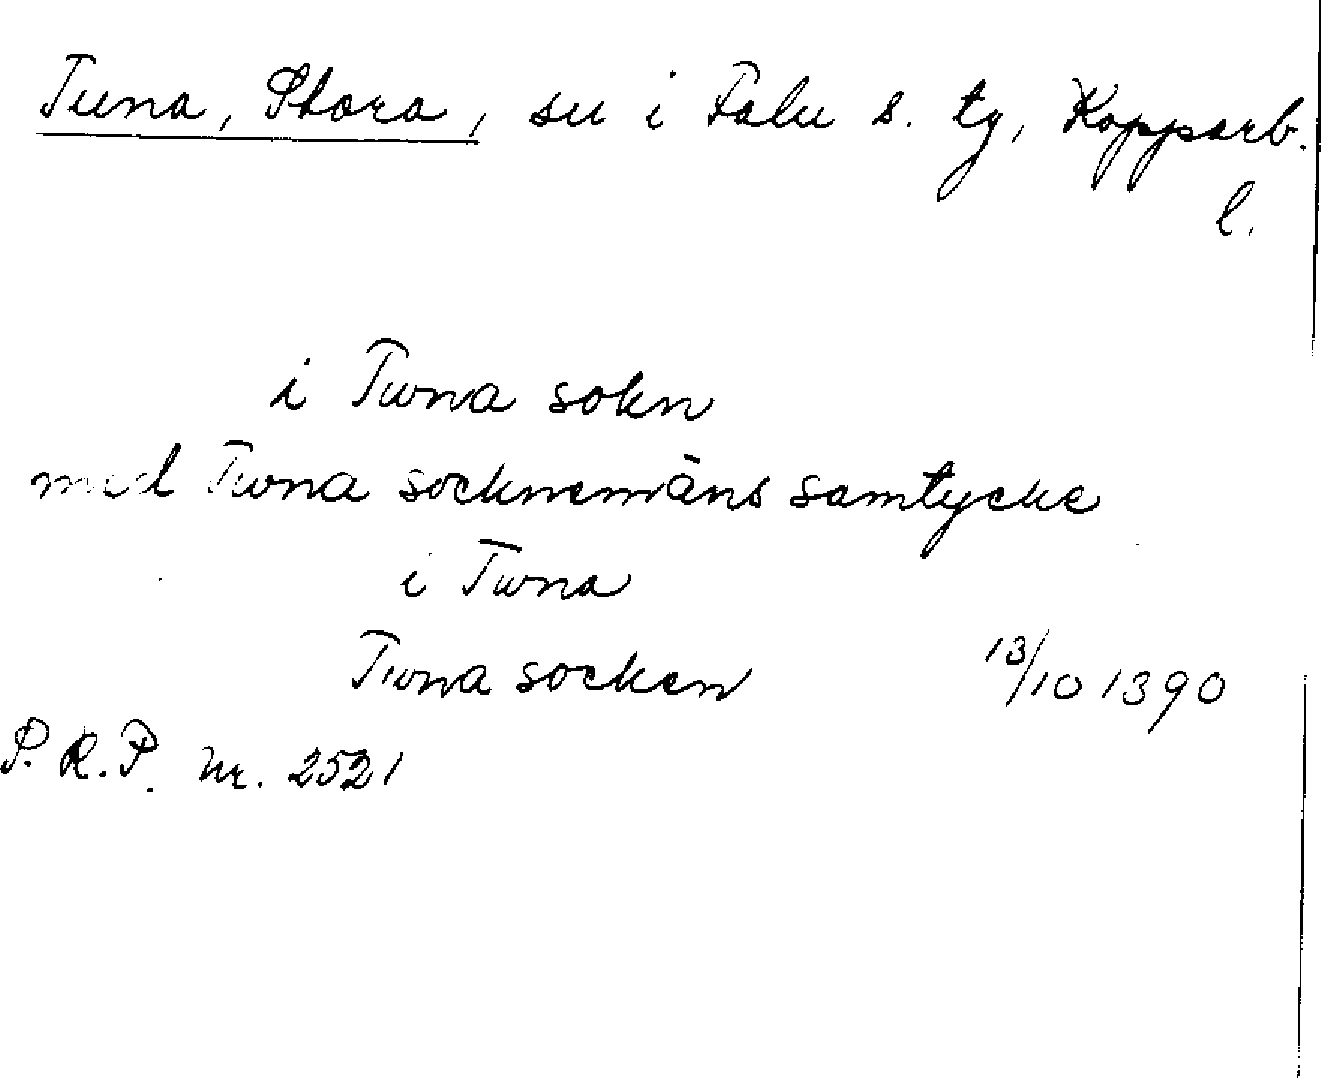 Tuna, Stora, sn i Falu s. tg, Kopparb.
l.
i Twna sokn
med Twna socknemäns samtycke
i Twna
Twna socken 13/10 1390
P.R.P. nr. 2521